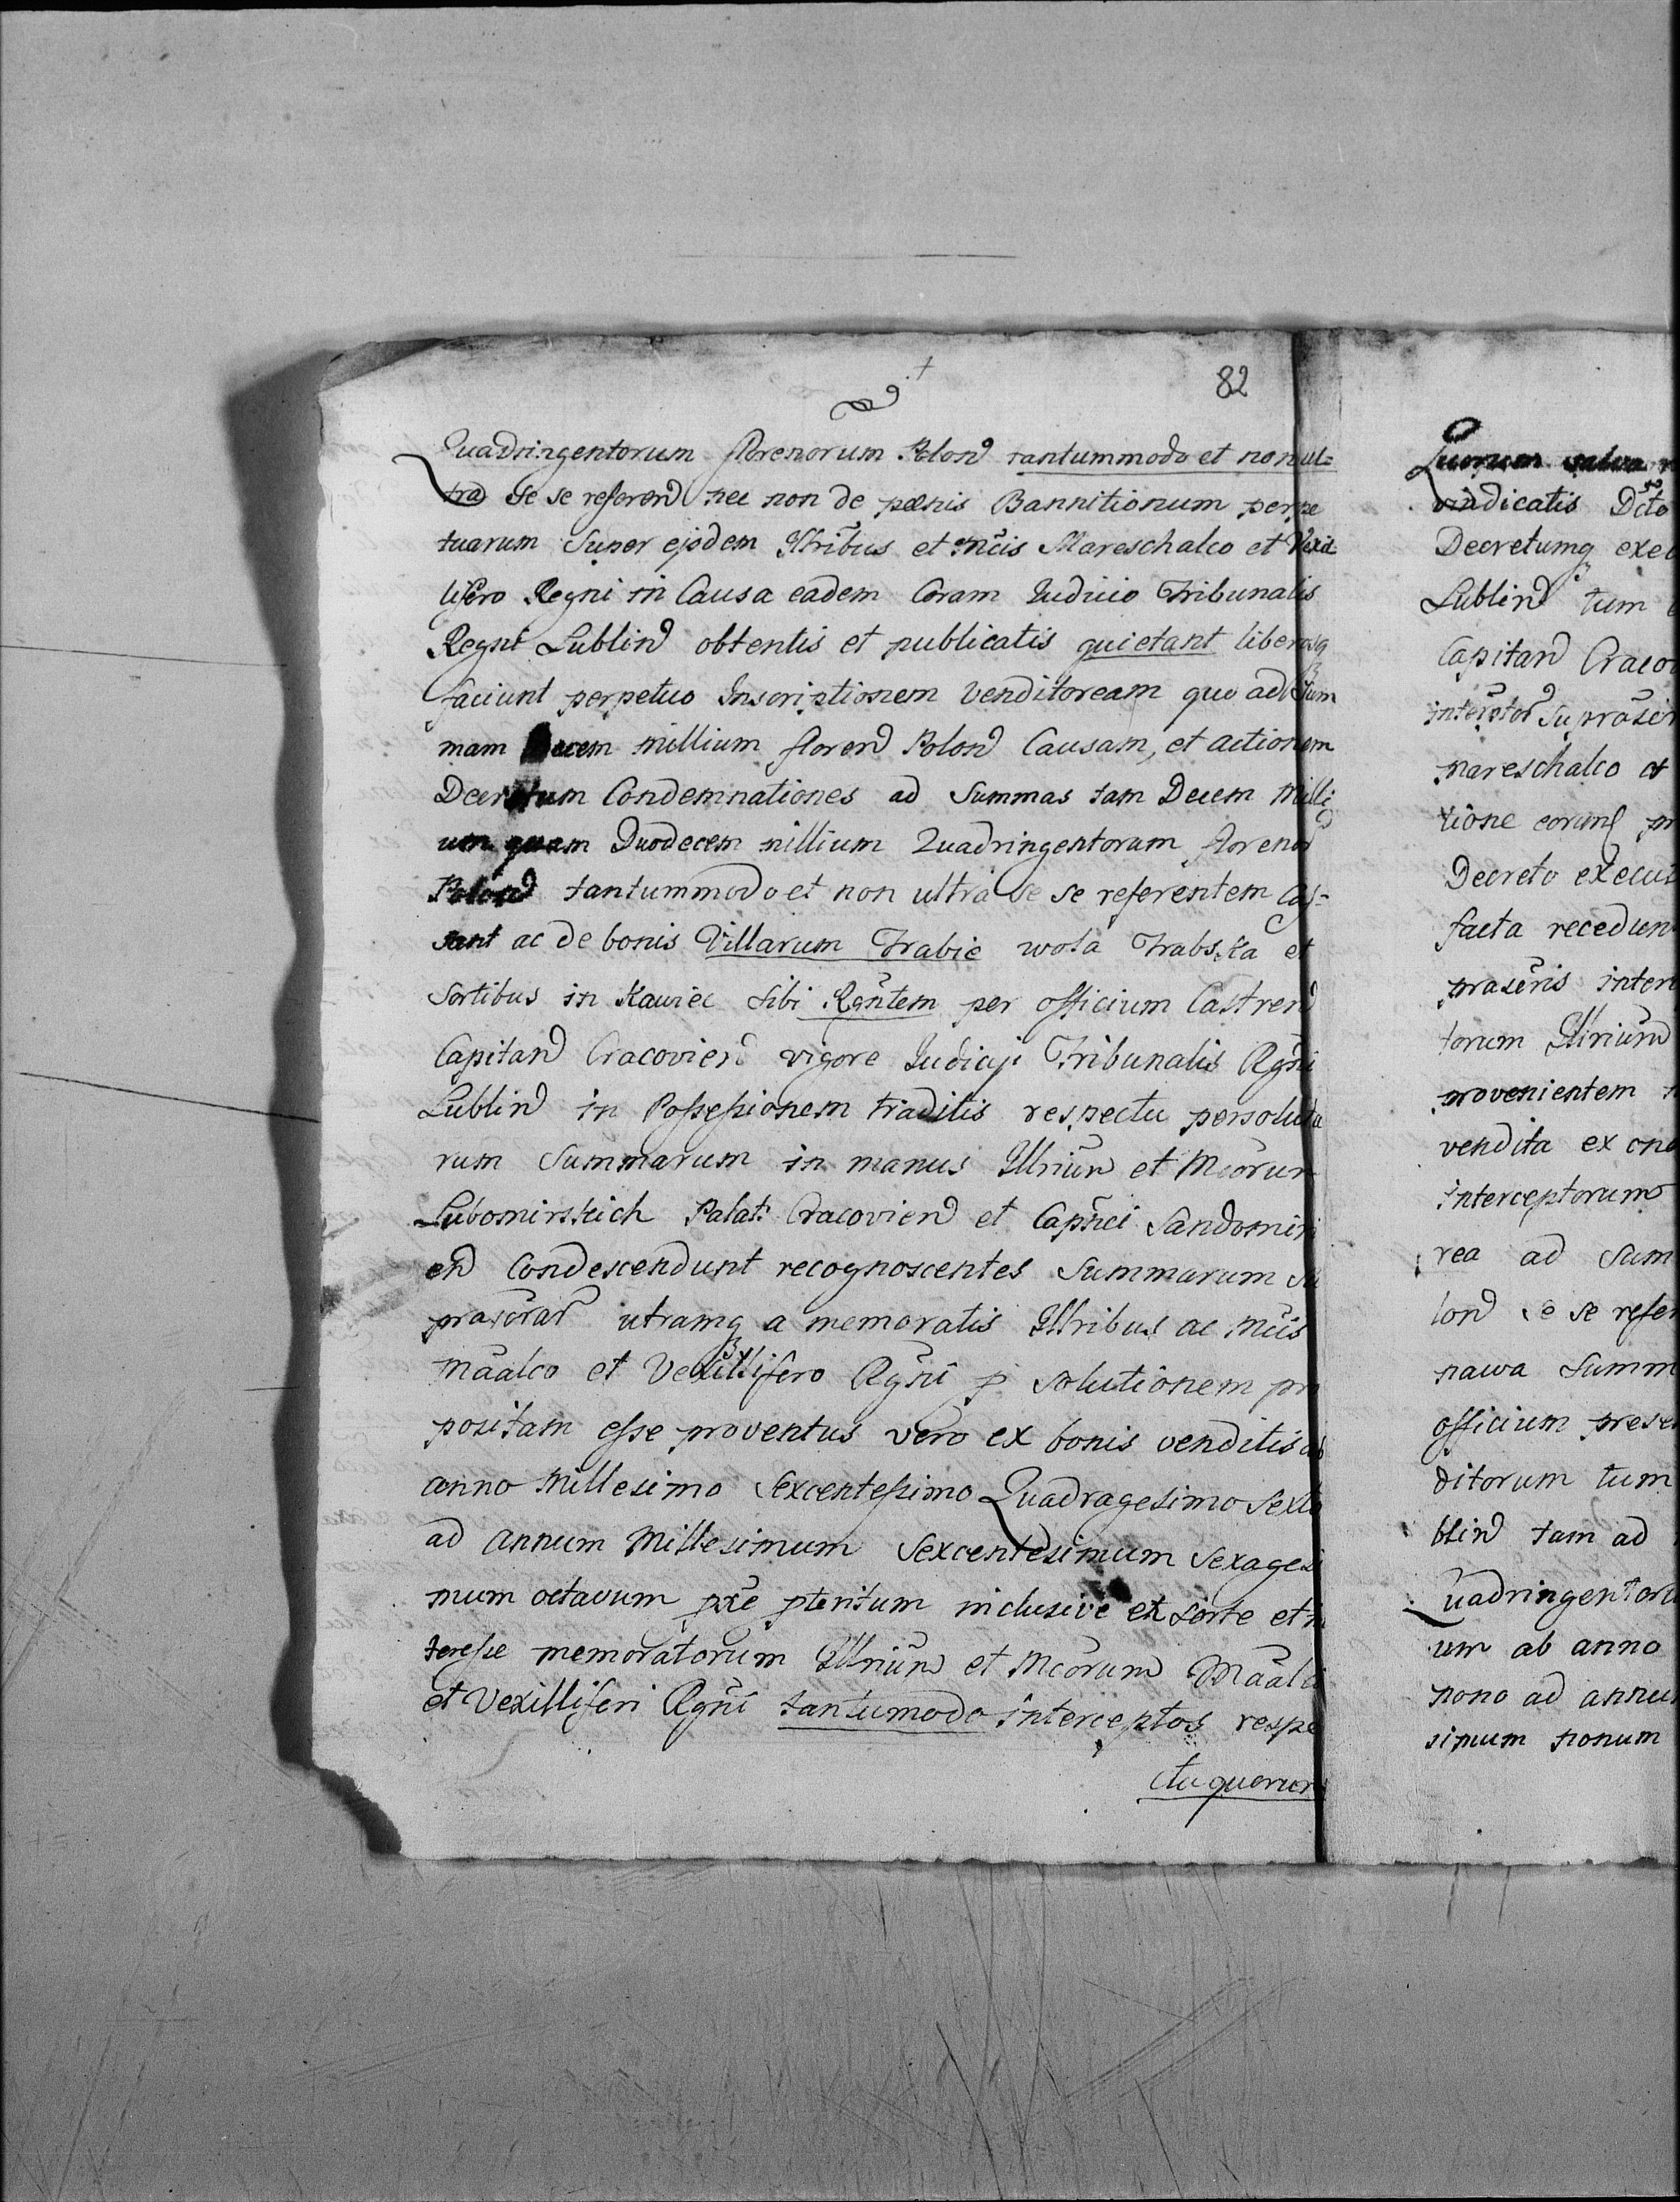 82
Quadringentorum florenorum Polon tantummodo et non ul=
tra se se referen nec non de pænis Bannitionum perpe
tuarum Super ejsdem Illribus et Mcis Mareschalco et Vexil
lifero Regni in Causa eadem Coram Judicio Tribunalis
Regni Lublin obtentis et publicatis quietant liberosq
faciunt perpetuo Inscriptionem Venditoream quo ad Sum
mam Decem millium floren Polon Causam, et actionem
Decretum Condemnationes ad Summas tam Decem Milli
um quam Duodecem millium Quadringentorum floreno
Polon tantummodo et non ultra se se referentem Cas=
sant ac de bonis Villarum Trabie wola Trabska et
Sortibus in Kawiec sibi Rgntem per officium Castren
Capitan Cracovien vigore Judicij Tribunalis Rgni
Lublin in Possessionem traditis respectu persoluta
rum Summarum in manus Illriun et Mcorum
Lubomirskich Palat: Cracovien et Capnei Sandomiri
en Condescendunt recognoscentes Summarum su
prascrar utramq a memoratis Illribus ac Mcis
Maalco et Vexillifero Rgni p solutionem pro
positam esse proventus vero ex bonis venditis ab
anno Millesimo Sexcentessimo Quadragesimo Sexto
ad annum Millesimum Sexcentesimum Sexagesi
mum octavum pxe pteritum inclusive ex sorte et in
teresse memoratorum Illriun et Mcorum Maalci
et Vexilliferi Rgni tantumodo interceptos respe
ctu quorum
Quorum salva
vindicatis Dcto
Decretumq exec
Lublin tum
Capitan Craco
Suprascr
Mareschalco et
tione eorund pr
Decreto execut
facta recedun
prascris inter
torum Illrium
provenientem
vendita ex one
interceptorum
rea ad Sum
lon se se refer
nawa Summ
officium prese
ditorum tum
blin tam ad
Quadringentoru
um ab anno
nono ad annu
simum nonum